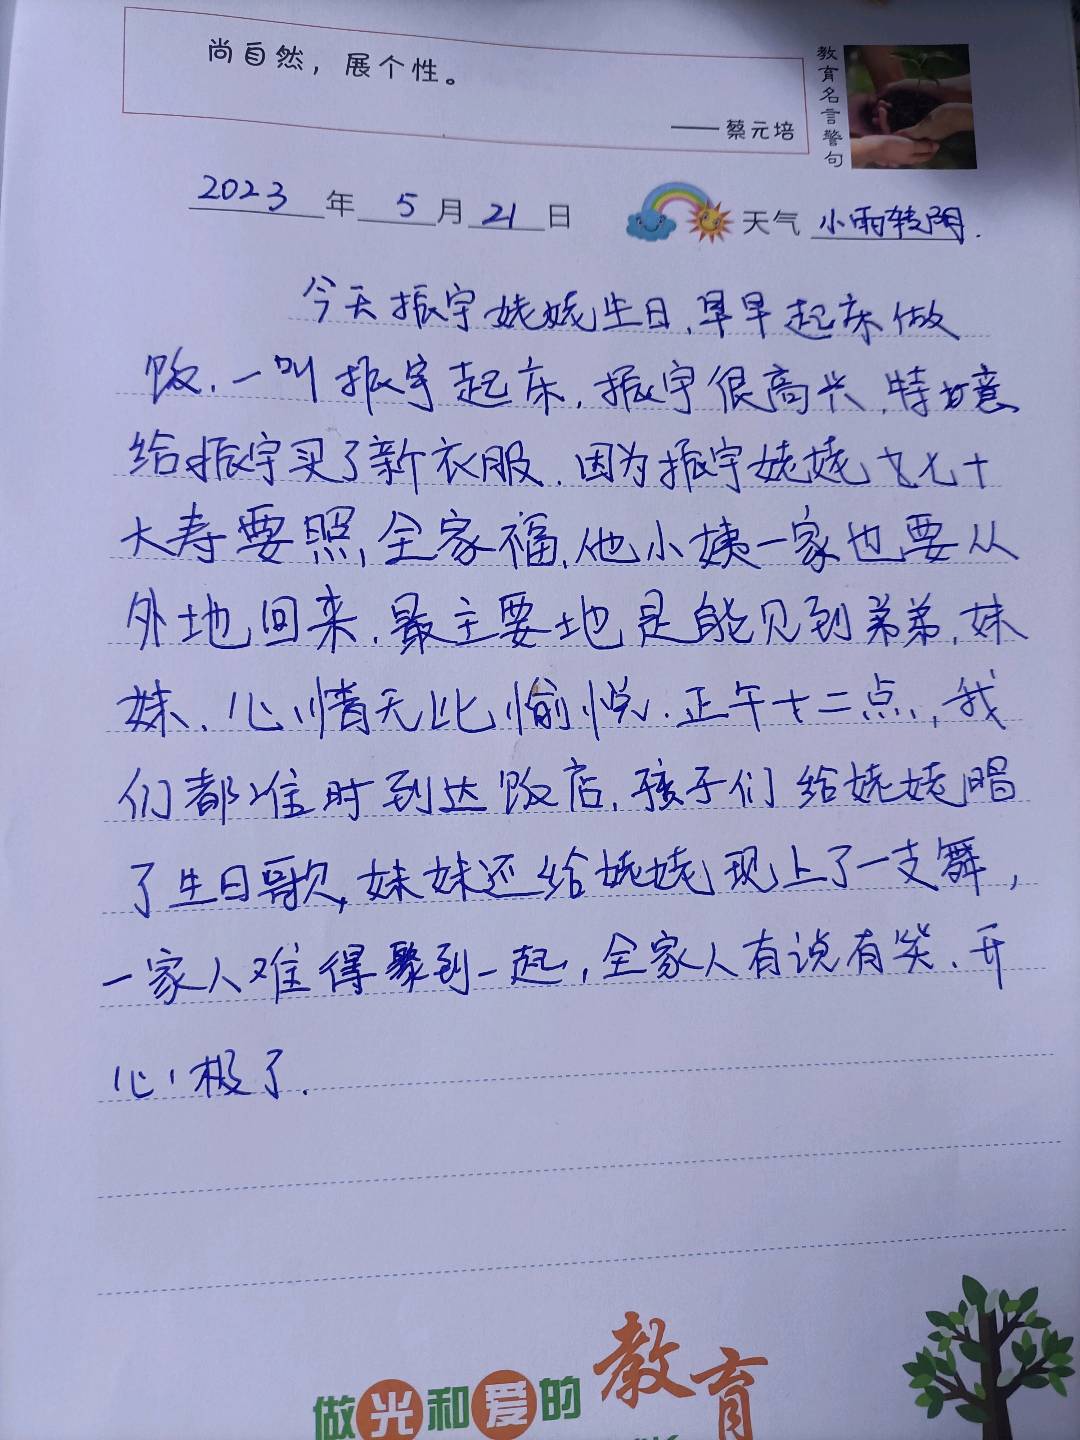 尚自然，展个性。
——蔡元培
教育名言警句
2023年5月21日 天气 小雨转阴.
今天振宇姥姥生日,早早起床做
饭,一叫振宇起床,振宇很高兴,特意
给振宇买了新衣服,因为振宇姥姥七十
大寿要照,全家福,他小姨一家也要从
外地回来,最主要地是能见到弟弟,妹
妹,心情无比愉悦.正午十二点,我
们都准时到达饭店,孩子们给姥姥唱
了生日歌,妹妹还给姥姥现上了一支舞,
一家人难得聚到一起,全家人有说有笑,开
心极了.
做光和爱的教育